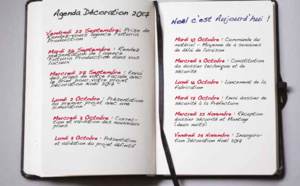 Agenda Décoration 2017
Vendredi 22 Septembre: Prise de
Rendez-vous agence Futuria
Production
Mardi 26 Septembre : Rendez
Futuria Production dans vos
locaux
Mercredi 27 Septembre : Envoi
Noël 2017
Lundi 2 Octobre : Présentation
du premier projet avec une
simulation
Mercredi 4 Octobre : Correc-
tion et validation des nouveaux
plans
Lundi 9 Octobre : Présentation
et validation du projet définitif
Noël c'est Aujourd'hui !
Mardi 10 Octobre : Commande du
matériel - Moyenne de 4 semaines
de délai de livraison
Mercredi 11 Octobre : Constitution
du dossier technique et de
sécurité
Lundi 16 Octobre : Lancement de la
Fabrication
Mardi 17 Octobre : Envoi dossier de
sécurité à la Préfecture
Mercredi 22 Novembre : Réception
dossier Sécurité et Montage
(deux nuits)
Vendredi 24 Novembre : Inaugura-
tion Décoration Noël 2017